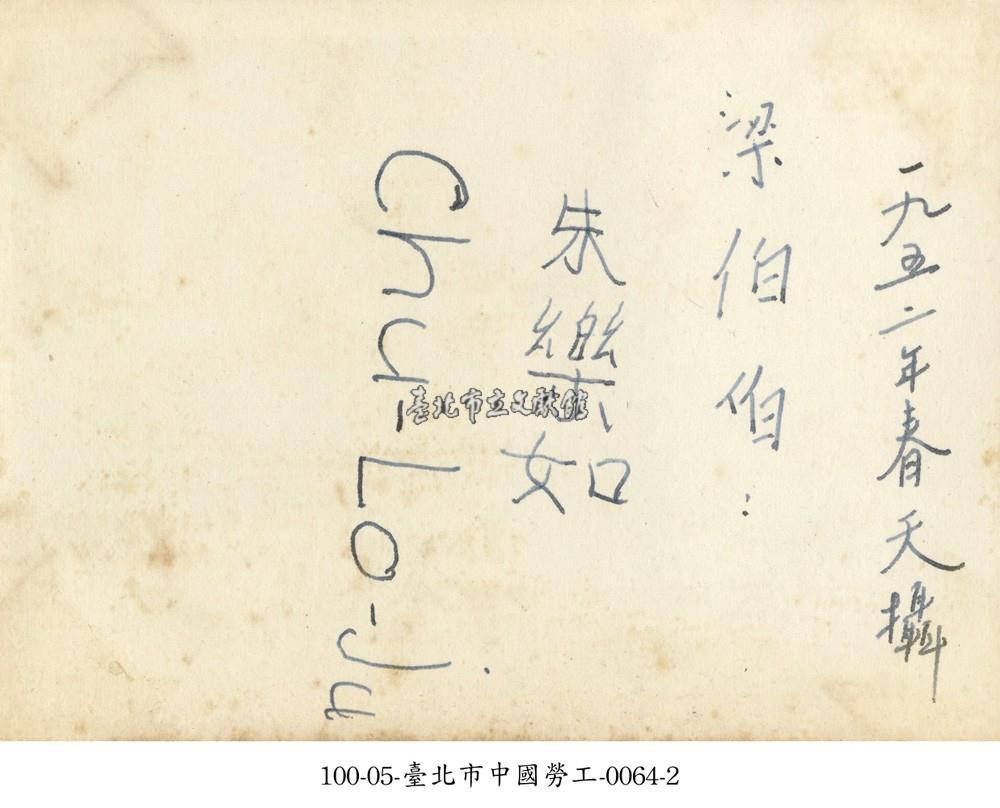 一九五二年春天攝
梁伯伯：
朱樂如
Chu Lo-ju
臺北市立文獻館
100-05-臺北市中國勞工-0064-2